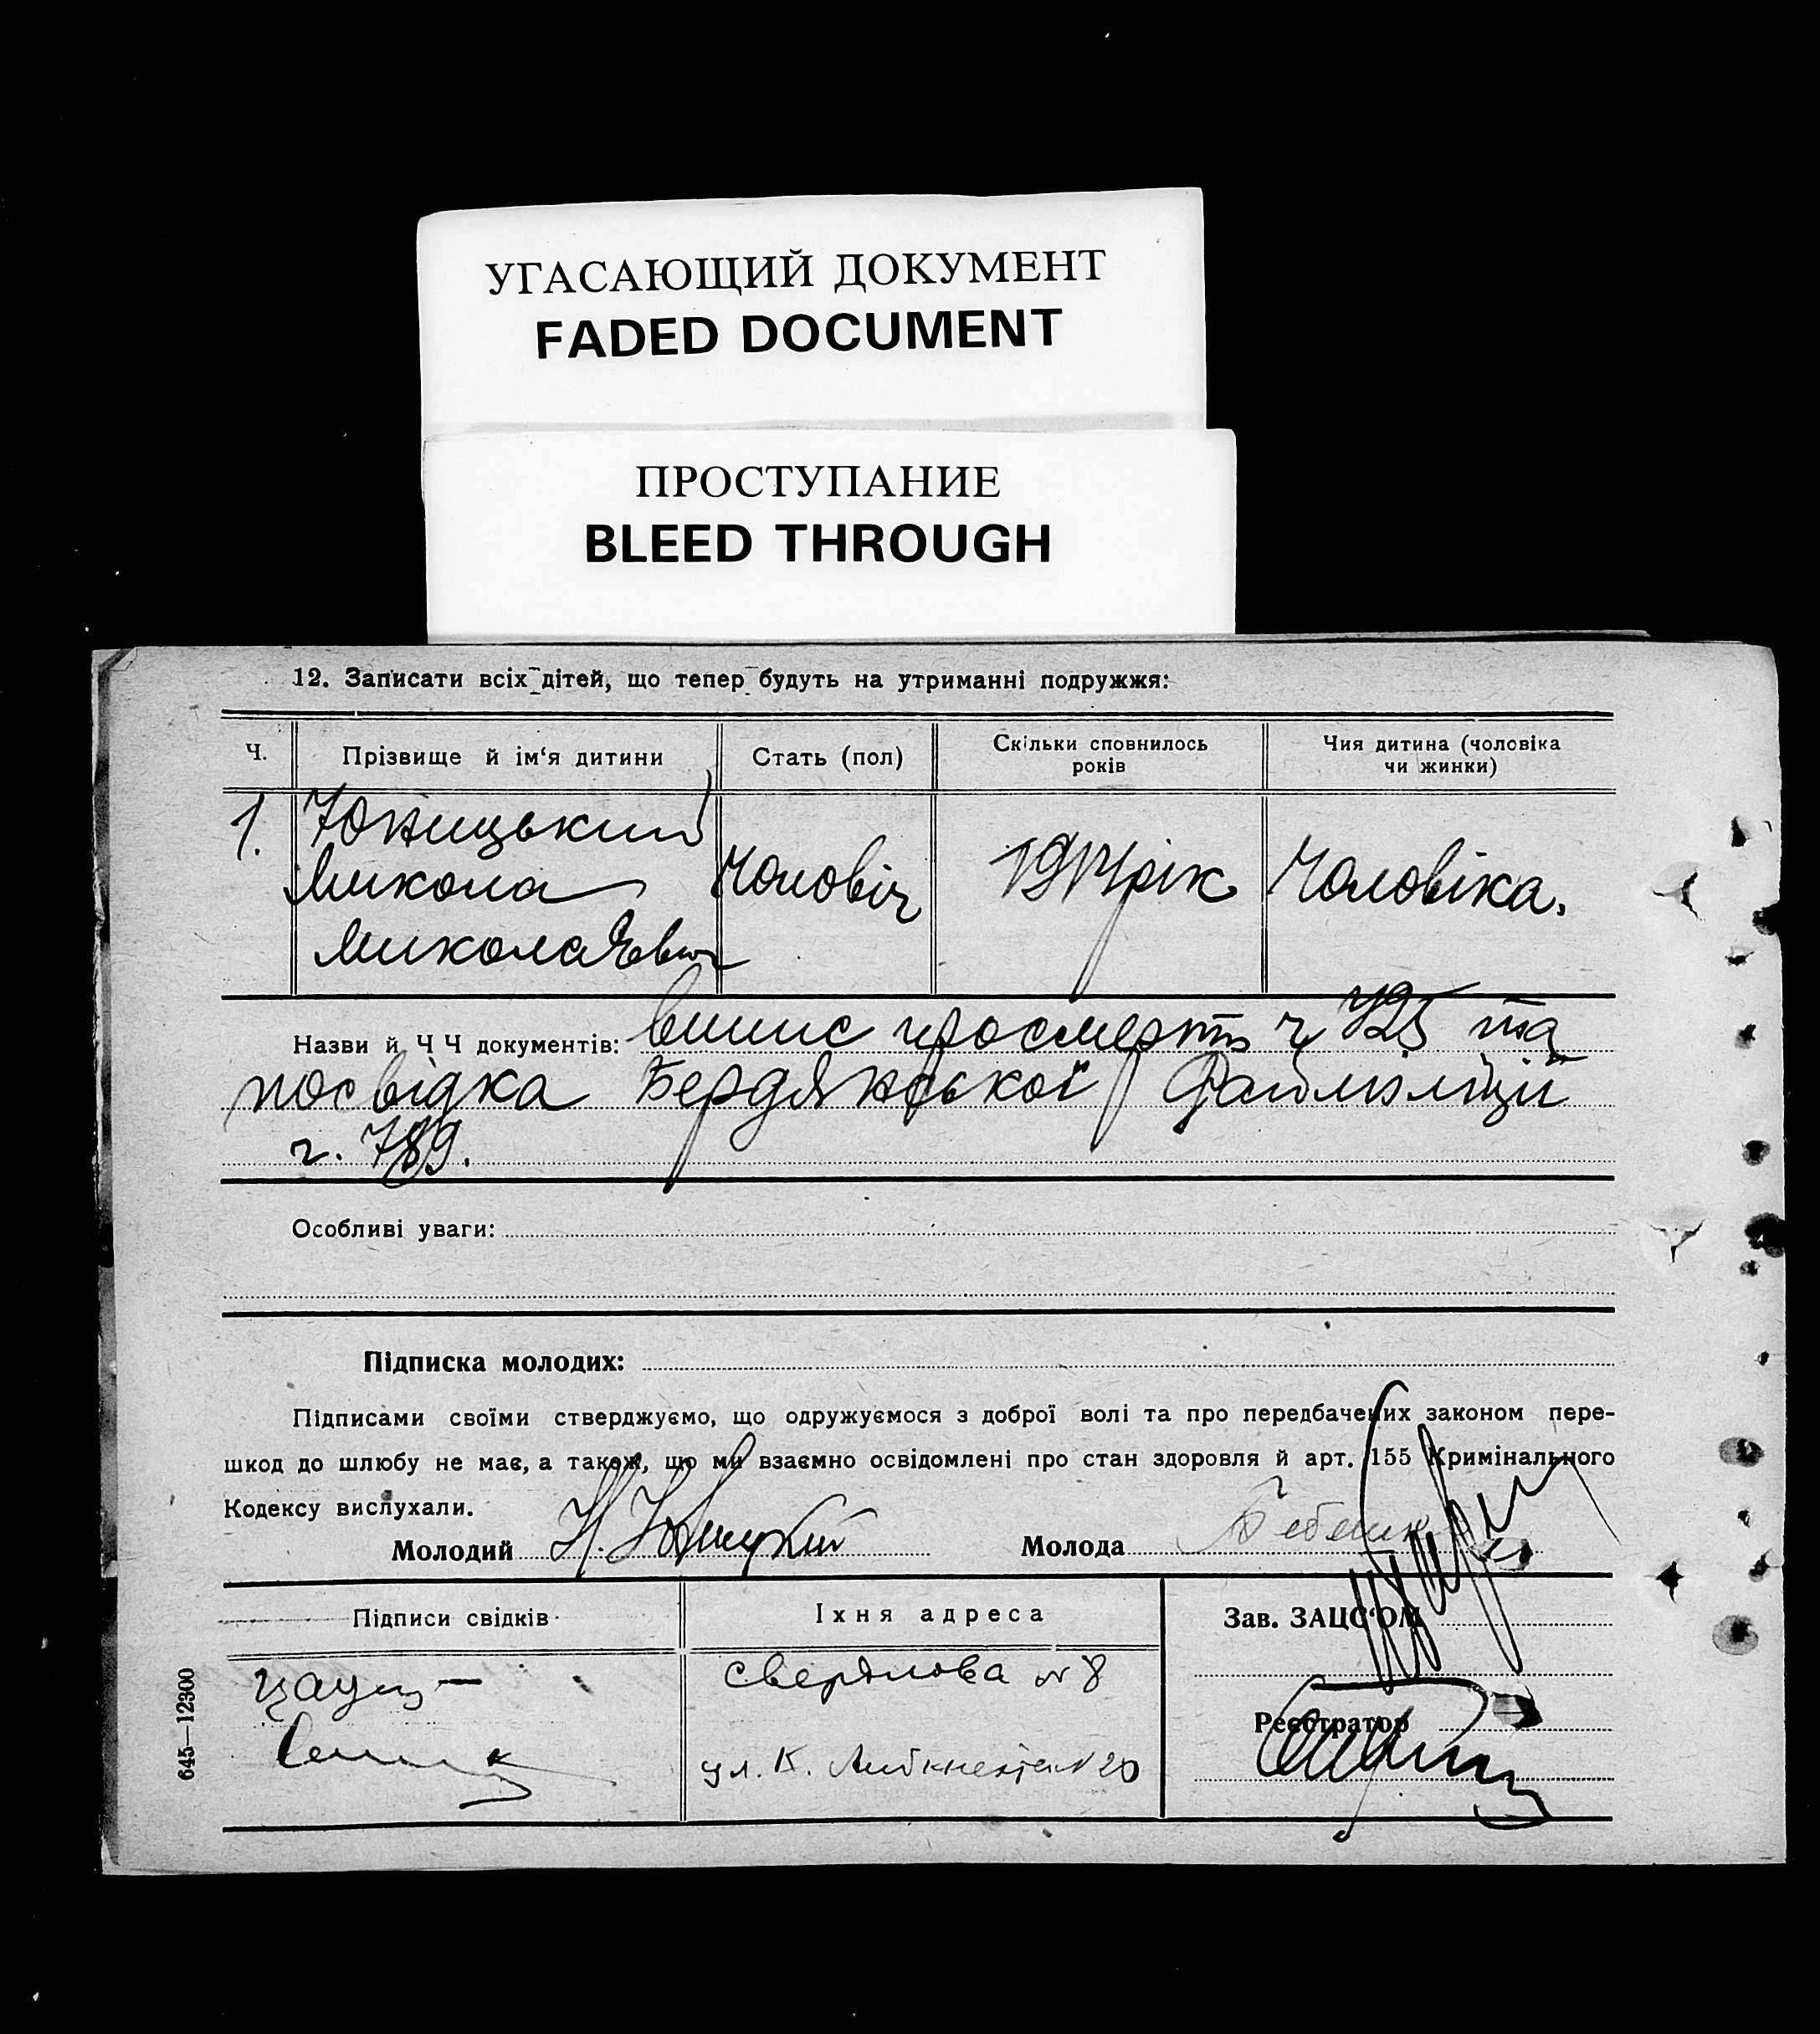 УГАСАЮЩИЙ ДОКУМЕНТ
FADED DOCUMENT
ПРОСТУПАНИЕ
BLEED THROUGH
12. Записати всіх дітей, що тепер будуть на утриманні подружжя:
Ч.
Прізвище й ім‘я дитини
Стать (пол)
Скільки сповнилось
років
Чия дитина (чоловіка
чи жинки)
1.
Юницький
Микола
Миколаєвич
Чоловіч
рік
Чоловіка.
Назви й Ч Ч документів: випис про смерть ч 725 та
посвідка Бердянської Райміліції
ч. 789.
Особливі уваги:
Підписка молодих:
Підписами своїми стверджуємо, що одружуємося з доброї волі та про передбачених законом пере-
шкод до шлюбу не має, а також, що ми взаємно освідомлені про стан здоровля й арт. 155 Кримінального
Кодексу вислухали.
Молодий Н. Юницкий
Молода
Підписи свідків
Їхня адреса
Зав. ЗАЦС‘ОМ
Свердлова № 8
Реєстратор
ул. К. Либкнехта № 20
645—12300